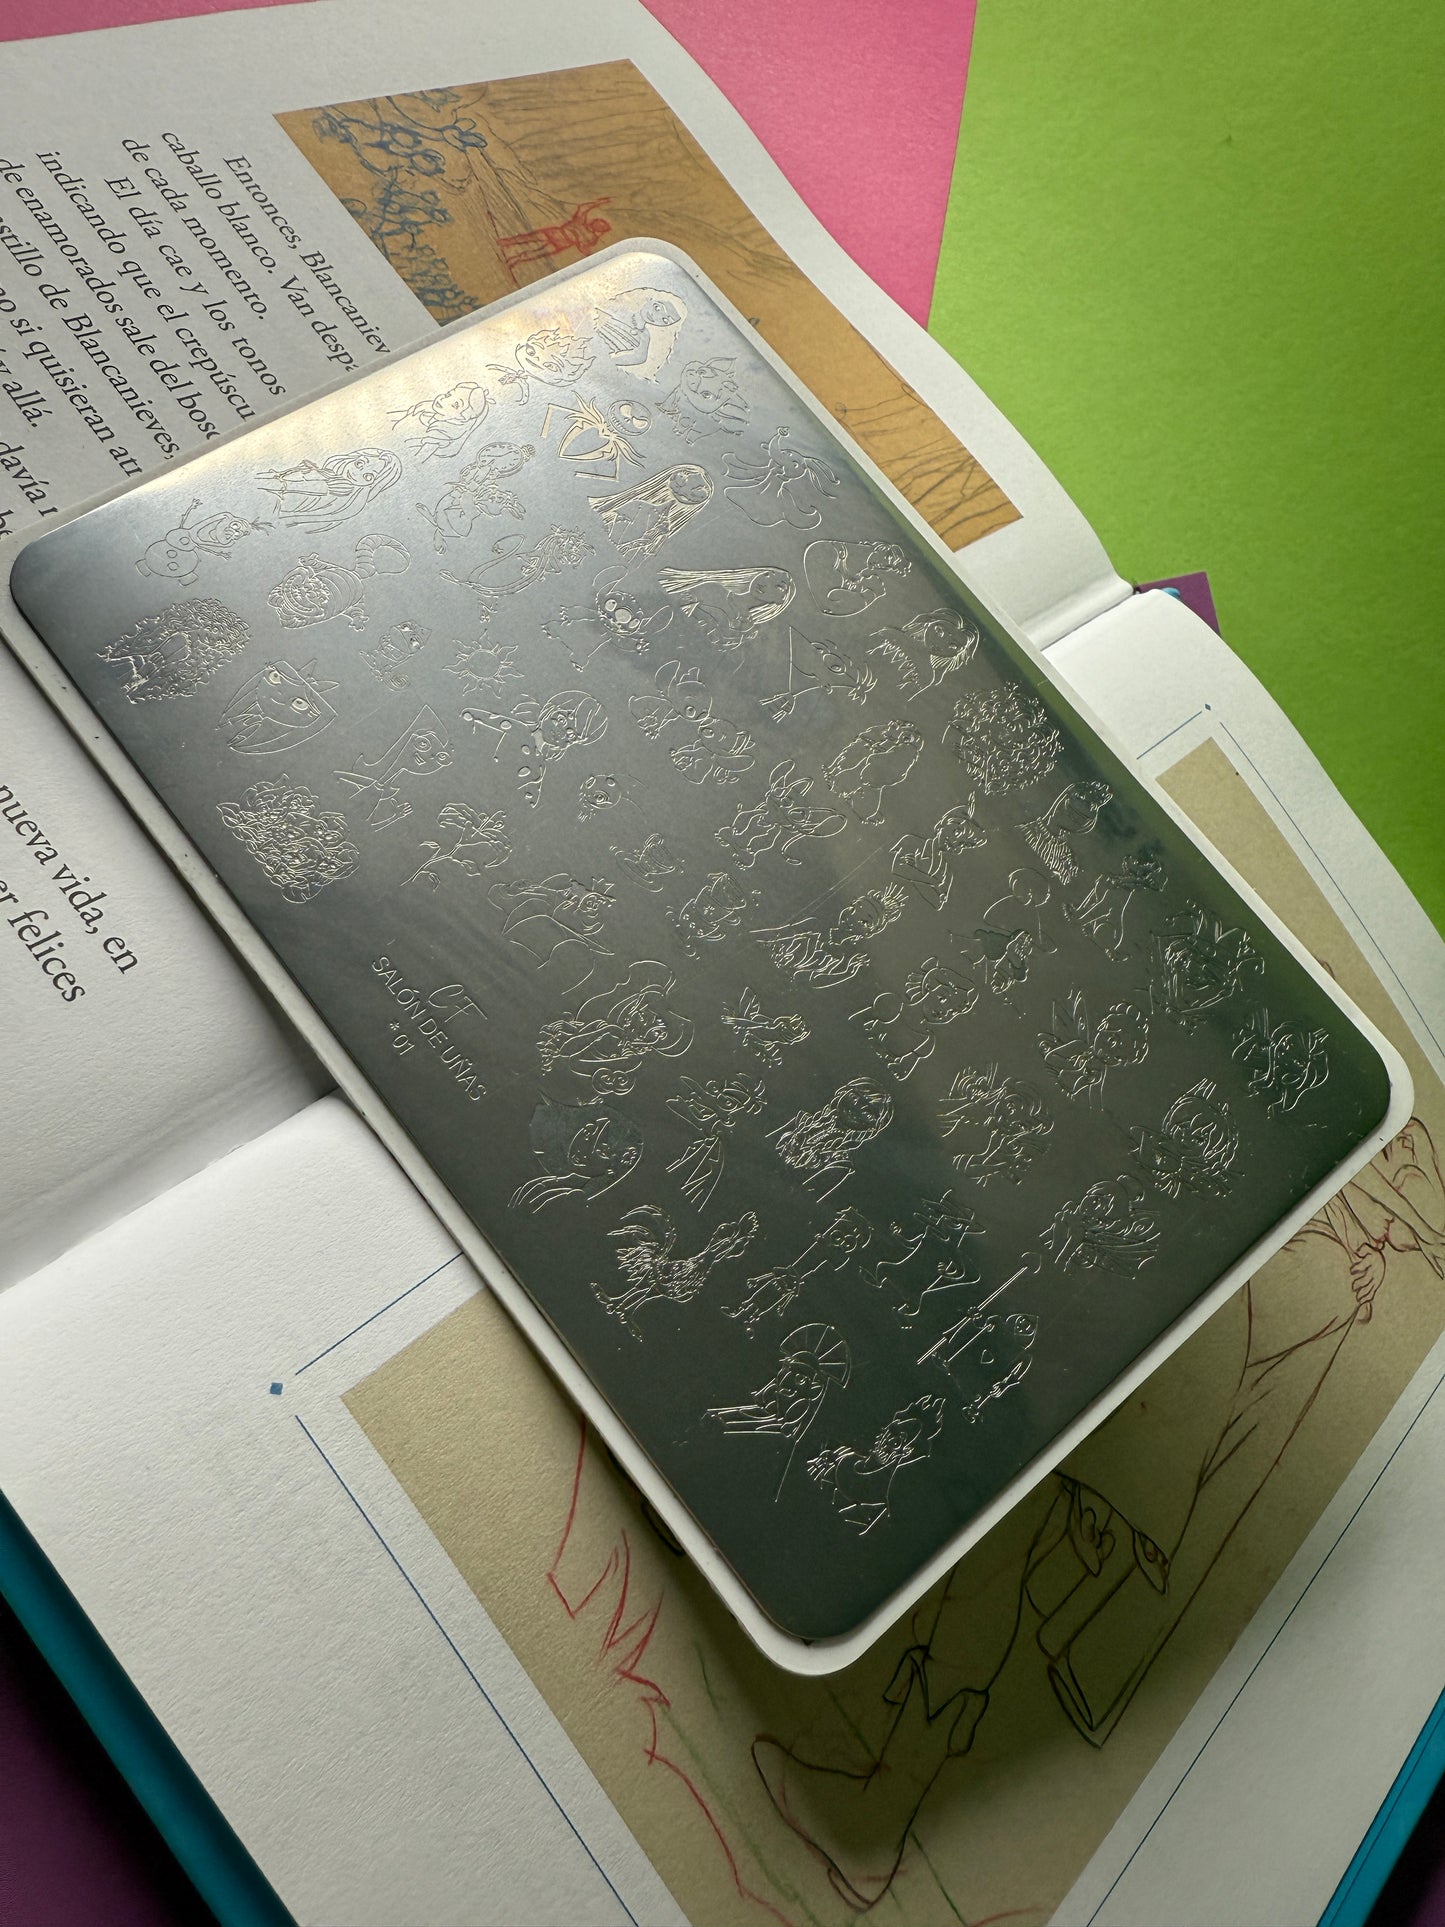 Entonces, Blancaniev
caballo blanco. Van despa
de cada momento.
El día cae y los tonos
indicando que el crepúscu
de enamorados sale del bosq
de Blancanieves,
si quisieran
y allá.
nueva vida, en
felices
CF
SALÓN DE UÑAS
* 01